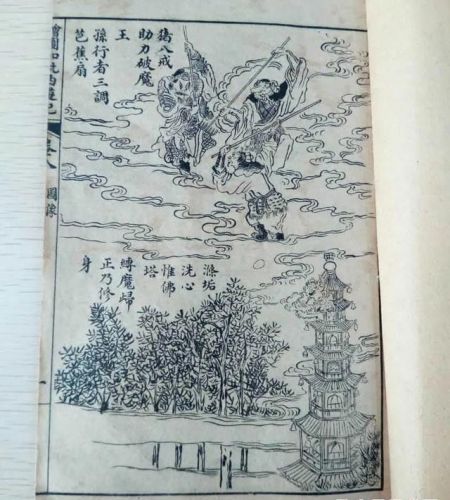 猪八戒
助力破魔
王
孫行者三調
芭蕉扇
滌垢
洗心
惟佛
塔
縛魔歸
正乃修
身
繪圖加批西遊記
卷八
圖像